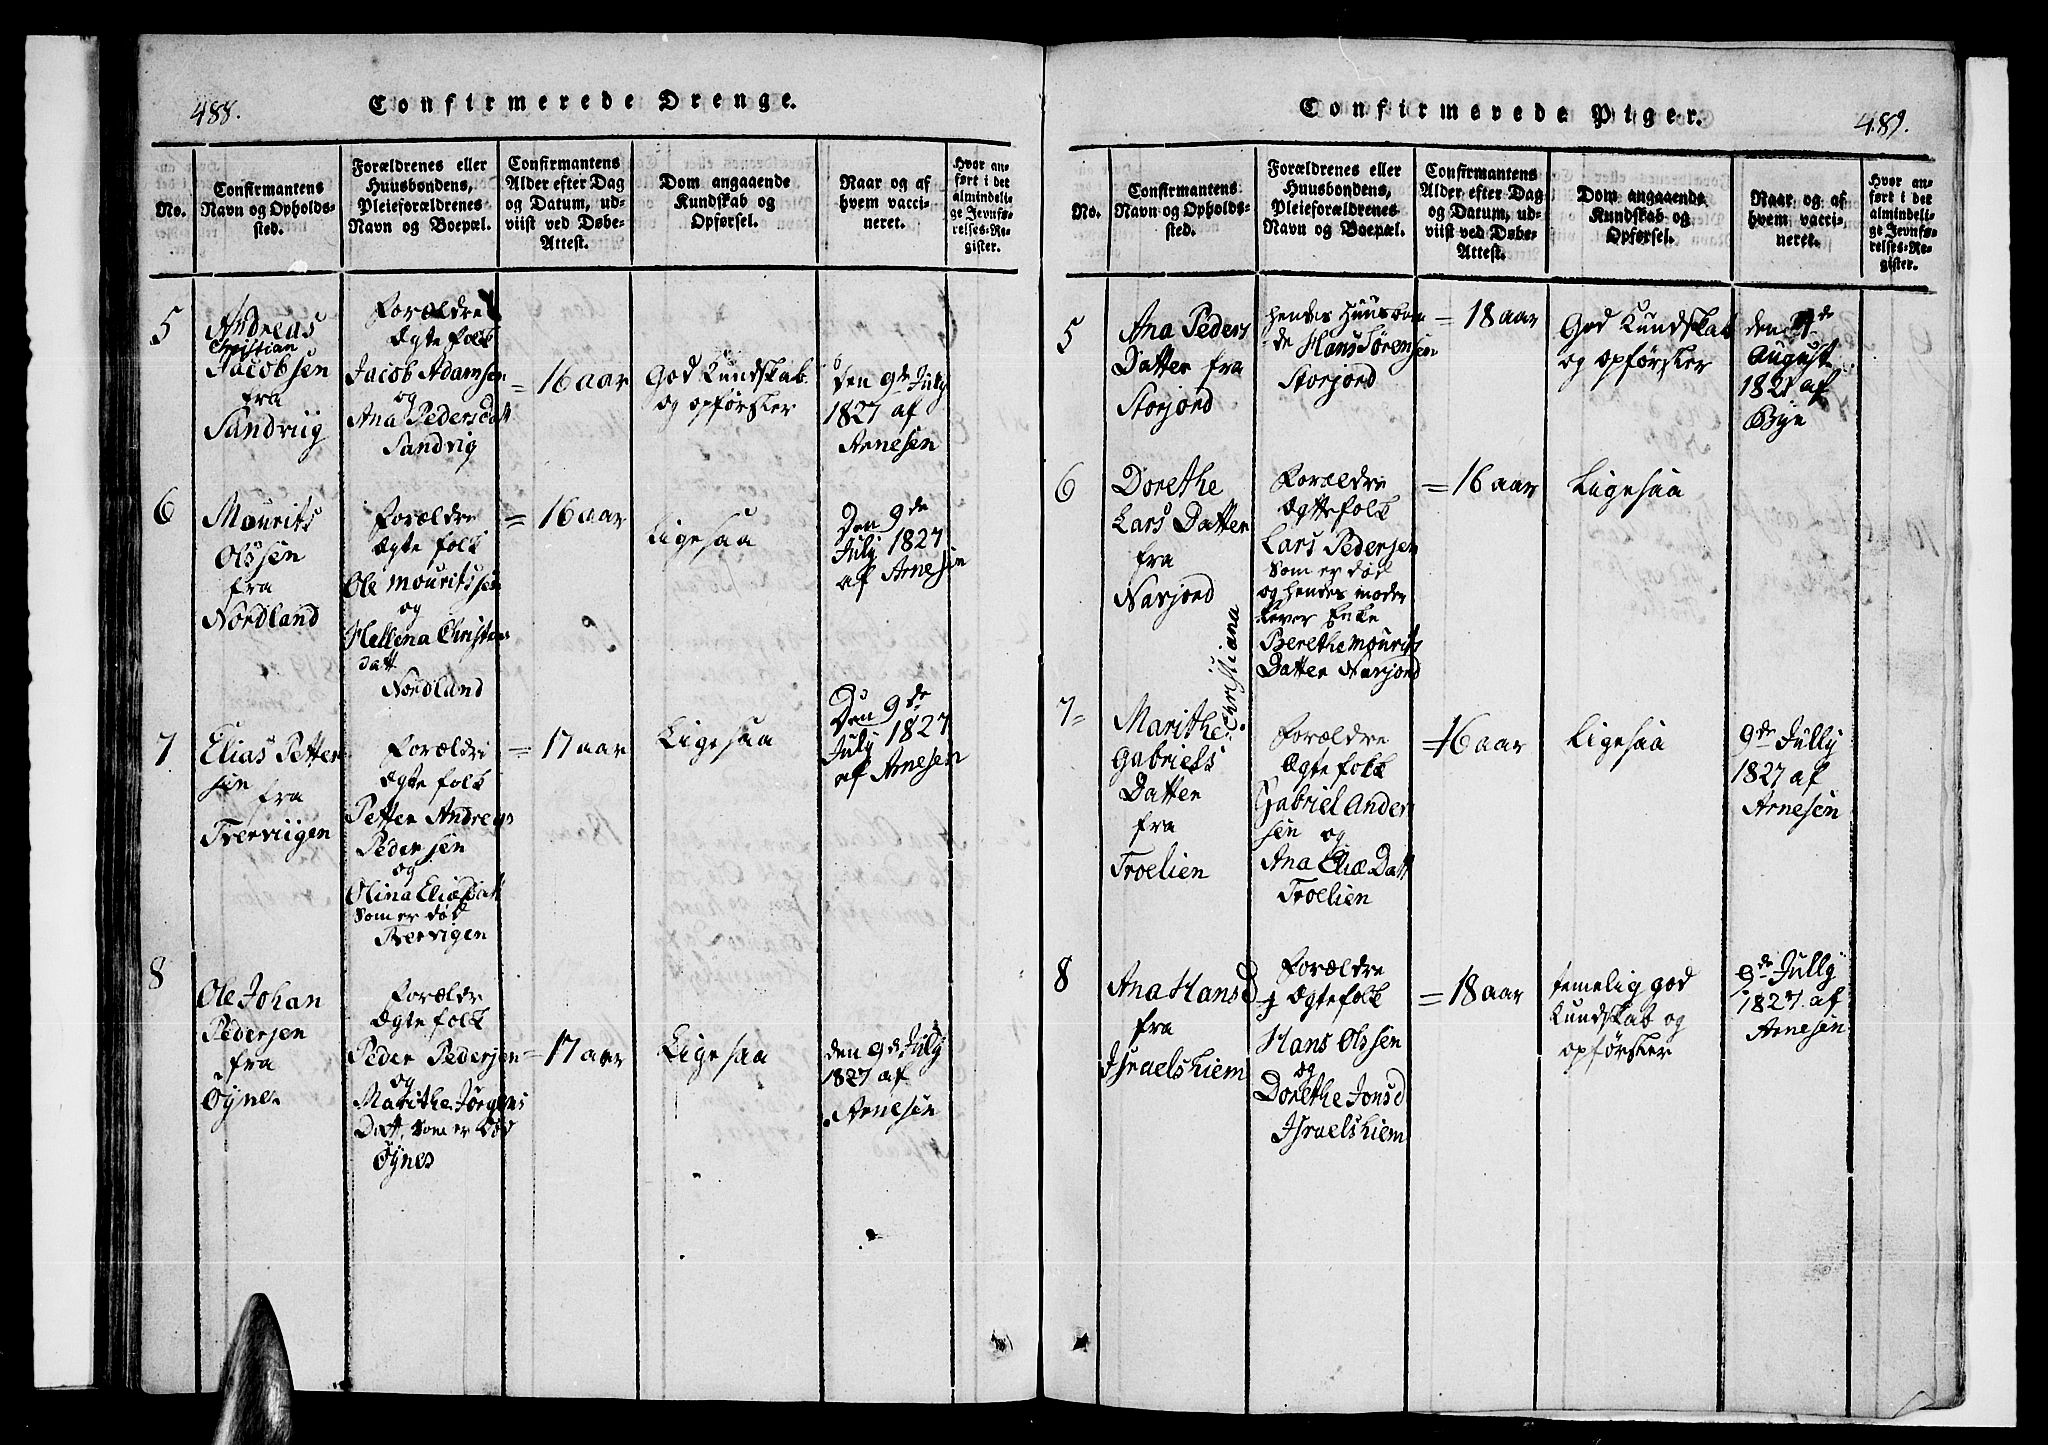 488.
Confirmerede Drenge.
No.
Confirmantens
Navn og Opholds-
sted.
Forældrenes eller
Huusbondens,
Pleieforældrenes
Navn og Boepæl.
Confirmantens
Alder efter Dag
og Datum, ud-
viist ved Døbe-
Attest.
Dom angaaende
Kundskab og
Opførsel.
Naar og af
hvem vacci-
neret.
Hvor an-
ført i det
almindeli-
ge Jevnfø-
relses-Re-
gister.
5
Andreas
Christian
Jacobsen
fra
Sandviig
Forældre
Ægte folk
Jacob Adamsen
og
Ana Pedersdatt
Sandvig
= 16 aar
God Kundskab
og opførsler
den 9de July
1827 af
Arnesen
6
Mourits
Olssen
fra
Nordland
Forældre
Ægte folk
Ole Mouritssen
og
Hellena Christens
datt
Nordland
= 16 aar
Ligesaa
Den 9de
July 1827
af Arnesen
7
Elias Petter
sen fra
Tverviigen
Forældri
Ægte folk
Petter Andreas
Pedersen
og
Olina Eliædatt
Som er død
Tvervigen
= 17 aar
Ligesaa
Den 9de
July 1827
af Arnesen
8
Ole Johan
Pedersen
fra
Øynes
Forældr
Ægte folk
Peder Pedersen
og
Marithe Jørgens
Datt, Som er Død
Øynes
= 17 aar
Ligesaa
den 9de July
1827 af
Arnesen
489.
Confirmerede Piger.
No.
Confirmantens
Navn og Opholds-
sted.
Forældrenes eller
Huusbondens,
Pleieforældrenes
Navn og Boepæl.
Confirmantens
Alder efter Dag
og Datum, ud-
viist ved Døbe-
Attest.
Dom angaaende
Kundskab og
Opførsel.
Naar og af
hvem vacci-
neret.
Hvor an-
ført i det
almindeli-
ge Jevnfø-
relses-Re-
gister.
5
Ana Peders
Datter fra
Storjord
hendes Huusbon
de Hans Sørensen
Storjord
= 18 aar
God Kundskab
og opførsler
den
August
1821 af
Bye
6
Dorethe
Lars Datter
fra
Narjord
Forældre
Ægtefolk
Lars Pedersen
Som er død
og hendes moder
lever Enke
Berethe Mourits
Datter Narjord
= 16 aar
Ligesaa
7
Marithe
Christiana
Gabriels
Datter
fra
Troelien
Forældre
Ægtefolk
Gabriel Ander
sen og
Ana Eliæ Datt
Troelien
= 16 aar
Ligesaa
9de Jully
1827 af
Arnesen
8
Ana Hansd
fra
Israelshiem
Forældre
Ægtefolk
Hans Olssen
og
Dorethe Jonsd
Israelshiem
= 18 aar
temelig god
Kundskab og
opførsler
9de Jully
1827. af
Arnesen